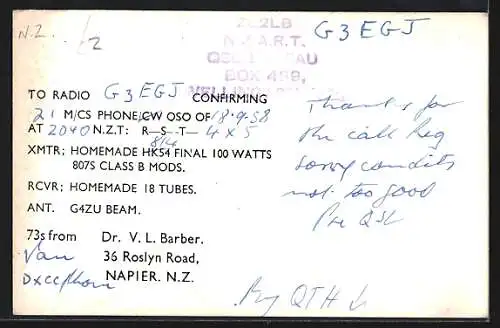 N.Z.
ZL2LB
G3EGJ
N.Z.A.R.T.
QSL
BOX 489,
WELLINGTON
TO RADIO G3EGJ CONFIRMING
21 M/CS PHONE/CW QSO OF 18.9.58
AT 2040 N.Z.T: R—S—T— 4 x 5
XMTR; HOMEMADE HK54 FINAL 100 WATTS
814
807S CLASS B MODS.
RCVR; HOMEMADE 18 TUBES.
ANT. G4ZU BEAM.
73s from Dr. V. L. Barber.
36 Roslyn Road,
NAPIER. N.Z.
Thanks for
the call Reg
sorry condits
not too good
Pse QSL
My QTH